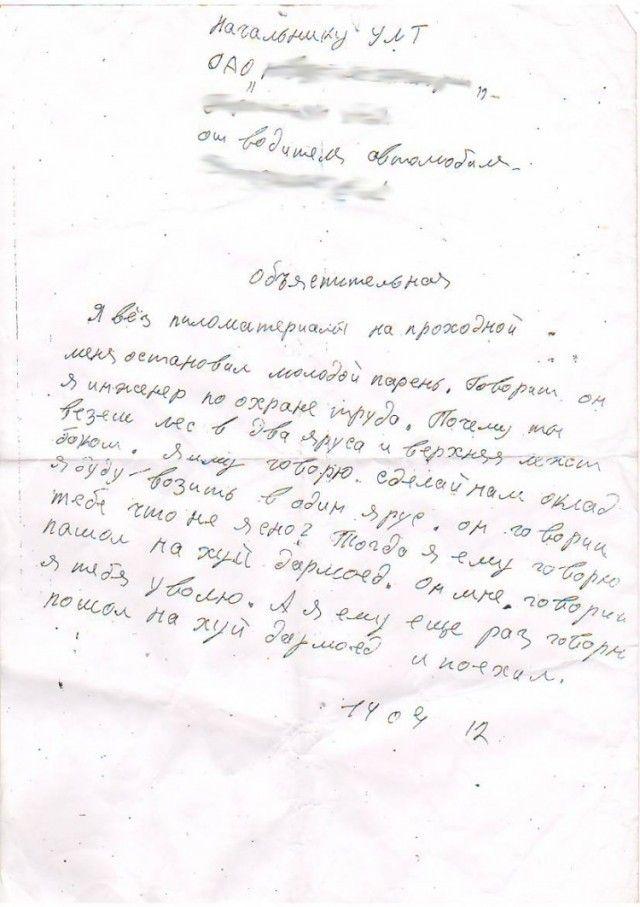 Начальнику УМТ
ОАО "
"-
от водителя автомобиля-
Объяснительная
Я вёз пиломатериалы на проходной
меня остановил молодой парень. Говорит он
я инженер по охране труда. Почему ты
везеш лес в два яруса и верхняя лежит
боком. Я ему говорю. сделай нам оклад
я буду возить в один ярус. он говорит
тебе что не ясно? Тогда я ему говорю
пашол на хуй дармоед. Он мне говорит
я тебя уволю. А я ему еще раз говорю
пошол на хуй дармоед и поехал.
14 04 12